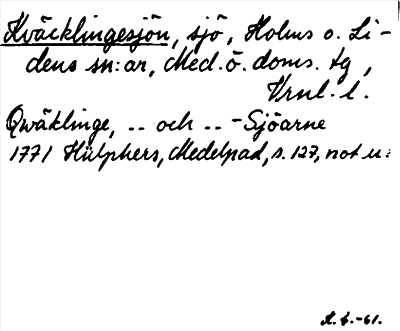 Kväcklingesjön, sjö, Holms o. Li-
dens sn:ar, Med. ö. doms. tg,
Vrnl. l.
Qwäklinge, .. och .. -Sjöarne
1771 Hülphers, Medelpad, s. 127, not u: